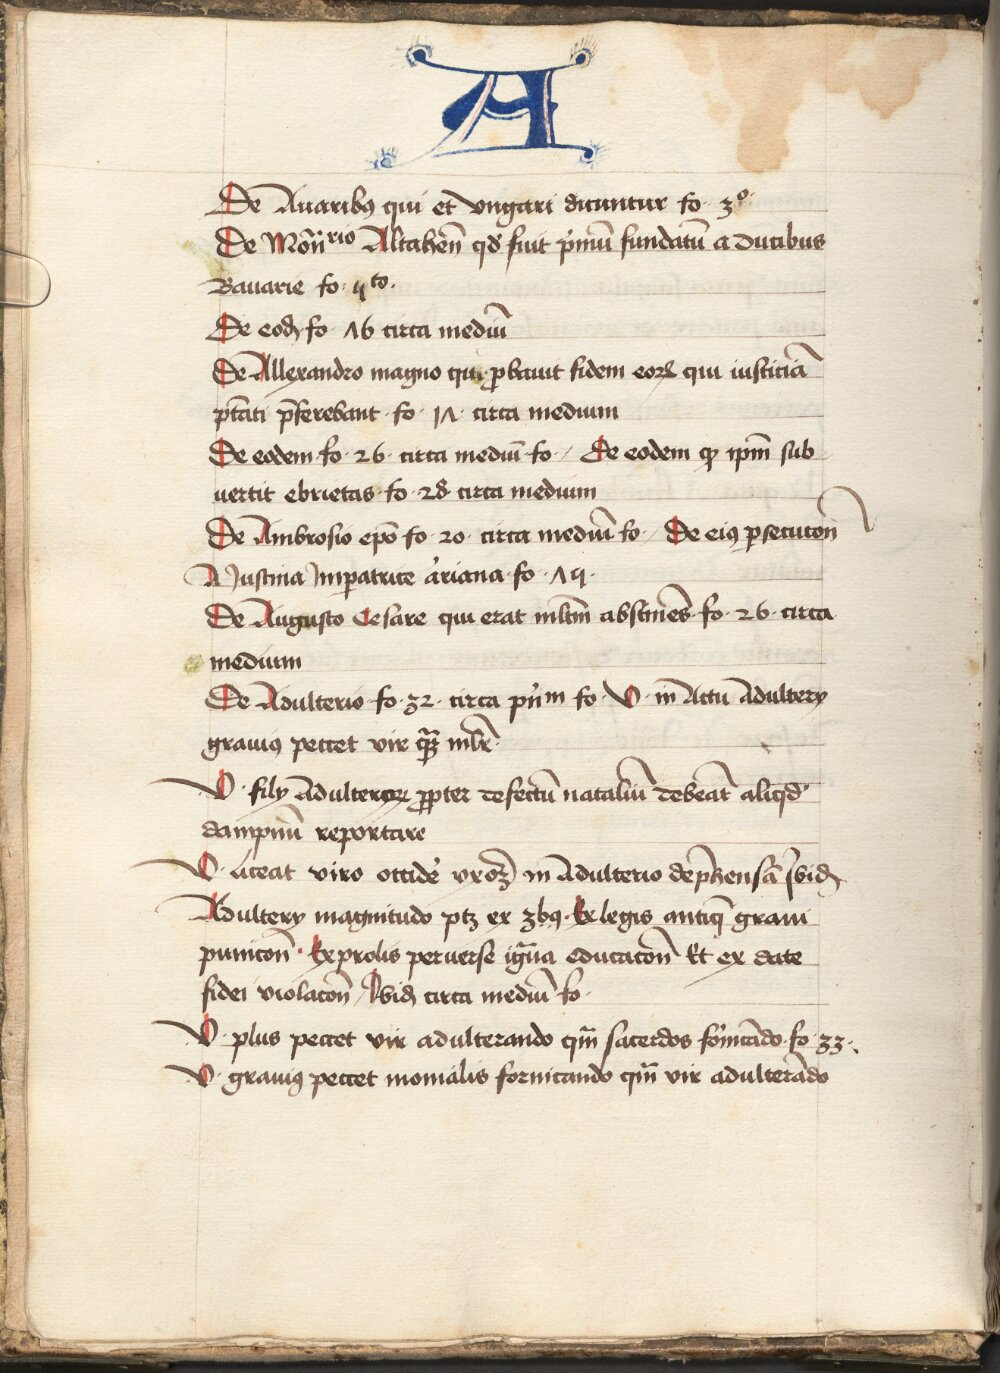 A
De Auaribꝯ qui et vngari dicuntur fo · 3º
De Mōn̄rio Altahen̄ qd' fuit p'mū fundatū a Ducibus
Bavarie fo · 4to ·
De eod fo · 16 circa mediū
De Allexandro magno qui ꝓbauit fidem eoꝝ qui iusticiā
ptāti p̄ferebant · fo · 17 · circa medium
De eodem · fo · 26 · circa mediū · fo / De eodem ꝙ ip̄m sub
uertit ebrietas · fo · 28 circa medium
De Ambrosio ep̄o fo · 20 · circa mediū fo / De eiꝯ ꝑsecucōn̄
A Justina Imperatrice arriana · fo ·
De Augusto Cesare qui erat mltm̄ abstin̄es · fo · 26 · circa
medium
De Adulterio · fo · 32 · circa prin̄m fo · V · in Actu Adultery
grauiꝯ peccet vir mlr̄ ·
V · fily Adulteroꝝ ꝓpter defectū nataliū debeāt aliqd'
dampnū reportare
V · liceat viro occide' vxoꝝ in Adulterio dep̄hensā Ibid
Adultery magnitudo ptꝫ ex 3bꝯ · Ex legis antiq̄ graui
punicōn̄ · Ex prolis peruerse educacōn̄ Et ex date
fidei violacōn̄ / Ibid circa mediū fo ·
V · plus peccet vir adulterando qm̄ sacerdos forn̄icādo · fo · 33 ·
V · grauiꝯ peccet monialis fornicando qm̄ vir adulterādo